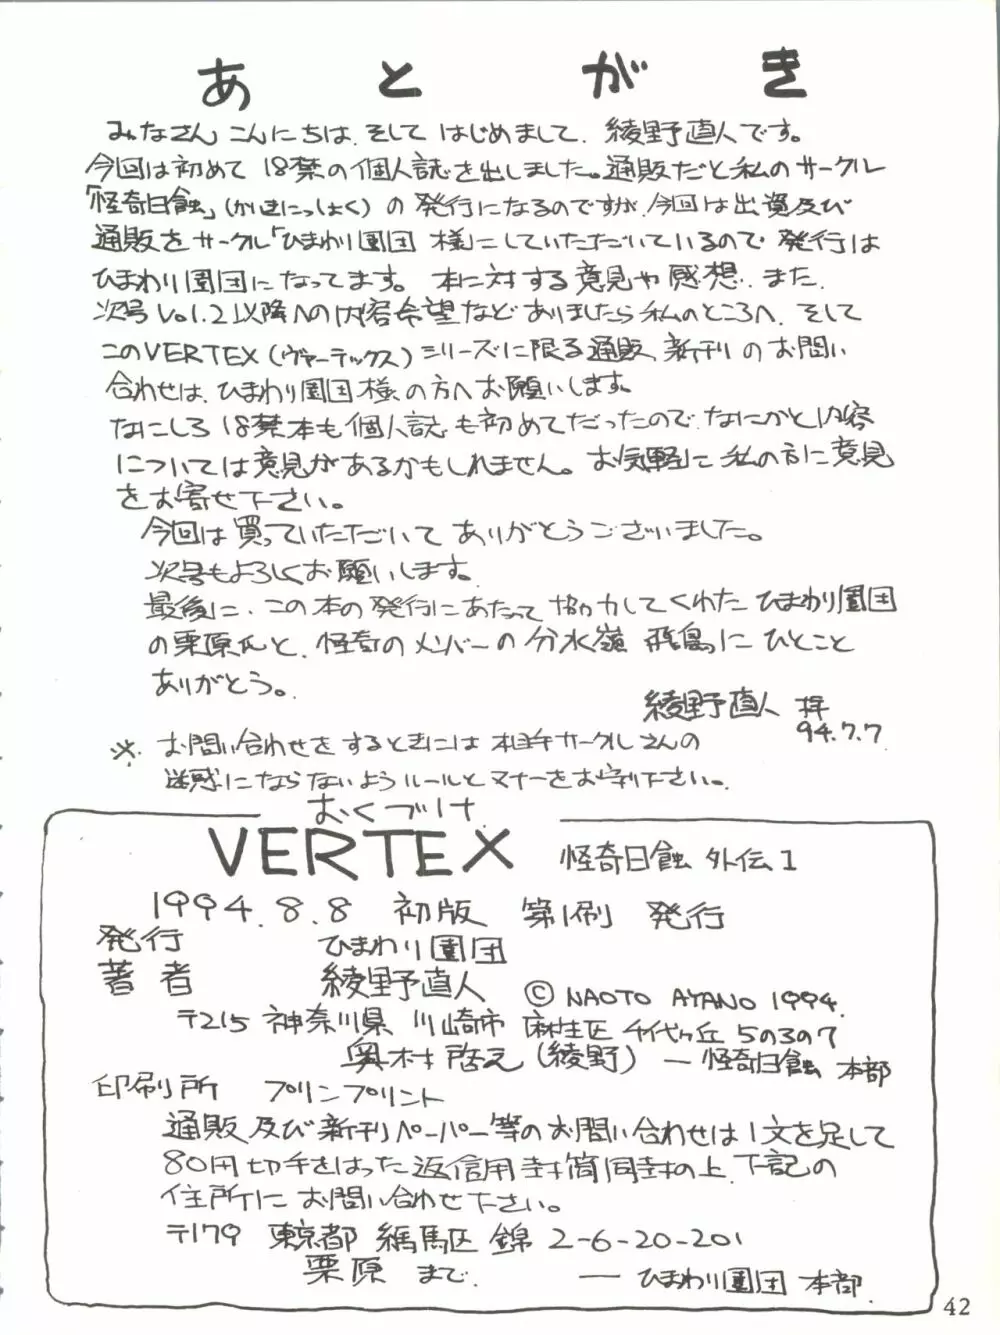 あとがき
みなさん こんにちは、そして はじめまして、綾野直人です。
今回は初めて 18禁の個人誌を出しました。通販だと私のサークル
「怪奇日蝕」(かいきにっしょく)の 発行になるのですが、今回は出資及び
通販をサークル「ひまわり園団 様」にしていただいているので 発行は
ひまわり園団になってます。 本に対する意見や感想、また、
次号Vol.2以降への内容希望などありましたら私のところへ、そして
このVERTEX(ヴァーテックス)シリーズに限る通販、新刊のお問い
合わせは、ひまわり園団様の方へお願いします。
なにしろ 18禁本も個人誌も初めてだったので、なにかと内容
については意見があるかもしれません。お気軽に私の方に意見
をお寄せ下さい。
今回は買っていただいてありがとうございました。
次号もよろしくお願いします。
最後に、この本の発行にあたって協力してくれたひまわり園団
の栗原氏と、怪奇のメンバーの分水嶺 飛鳥に ひとこと
ありがとう。
綾野直人 拝
94.7.7
※ お問い合わせをするときには相手サークルさんの
迷惑にならないようルールとマナーをお守り下さい。
おくづけ
VERTEX 怪奇日蝕 外伝1
1994.8.8 初版 第1刷 発行
発行 ひまわり園団
著者 綾野直人 © NAOTO AYANO 1994.
〒215 神奈川県 川崎市 麻生区 千代ヶ丘 5の3の7
奥村 啓之(綾野) ― 怪奇日蝕 本部
印刷所 プリンプリント
通販及び新刊ペーパー等のお問い合わせは1文を足して
80円切手をはった返信用封筒同封の上、下記の
住所に お問い合わせ下さい。
〒179 東京都 練馬区 錦 2-6-20-201
栗原 まで。 ― ひまわり園団 本部.
42